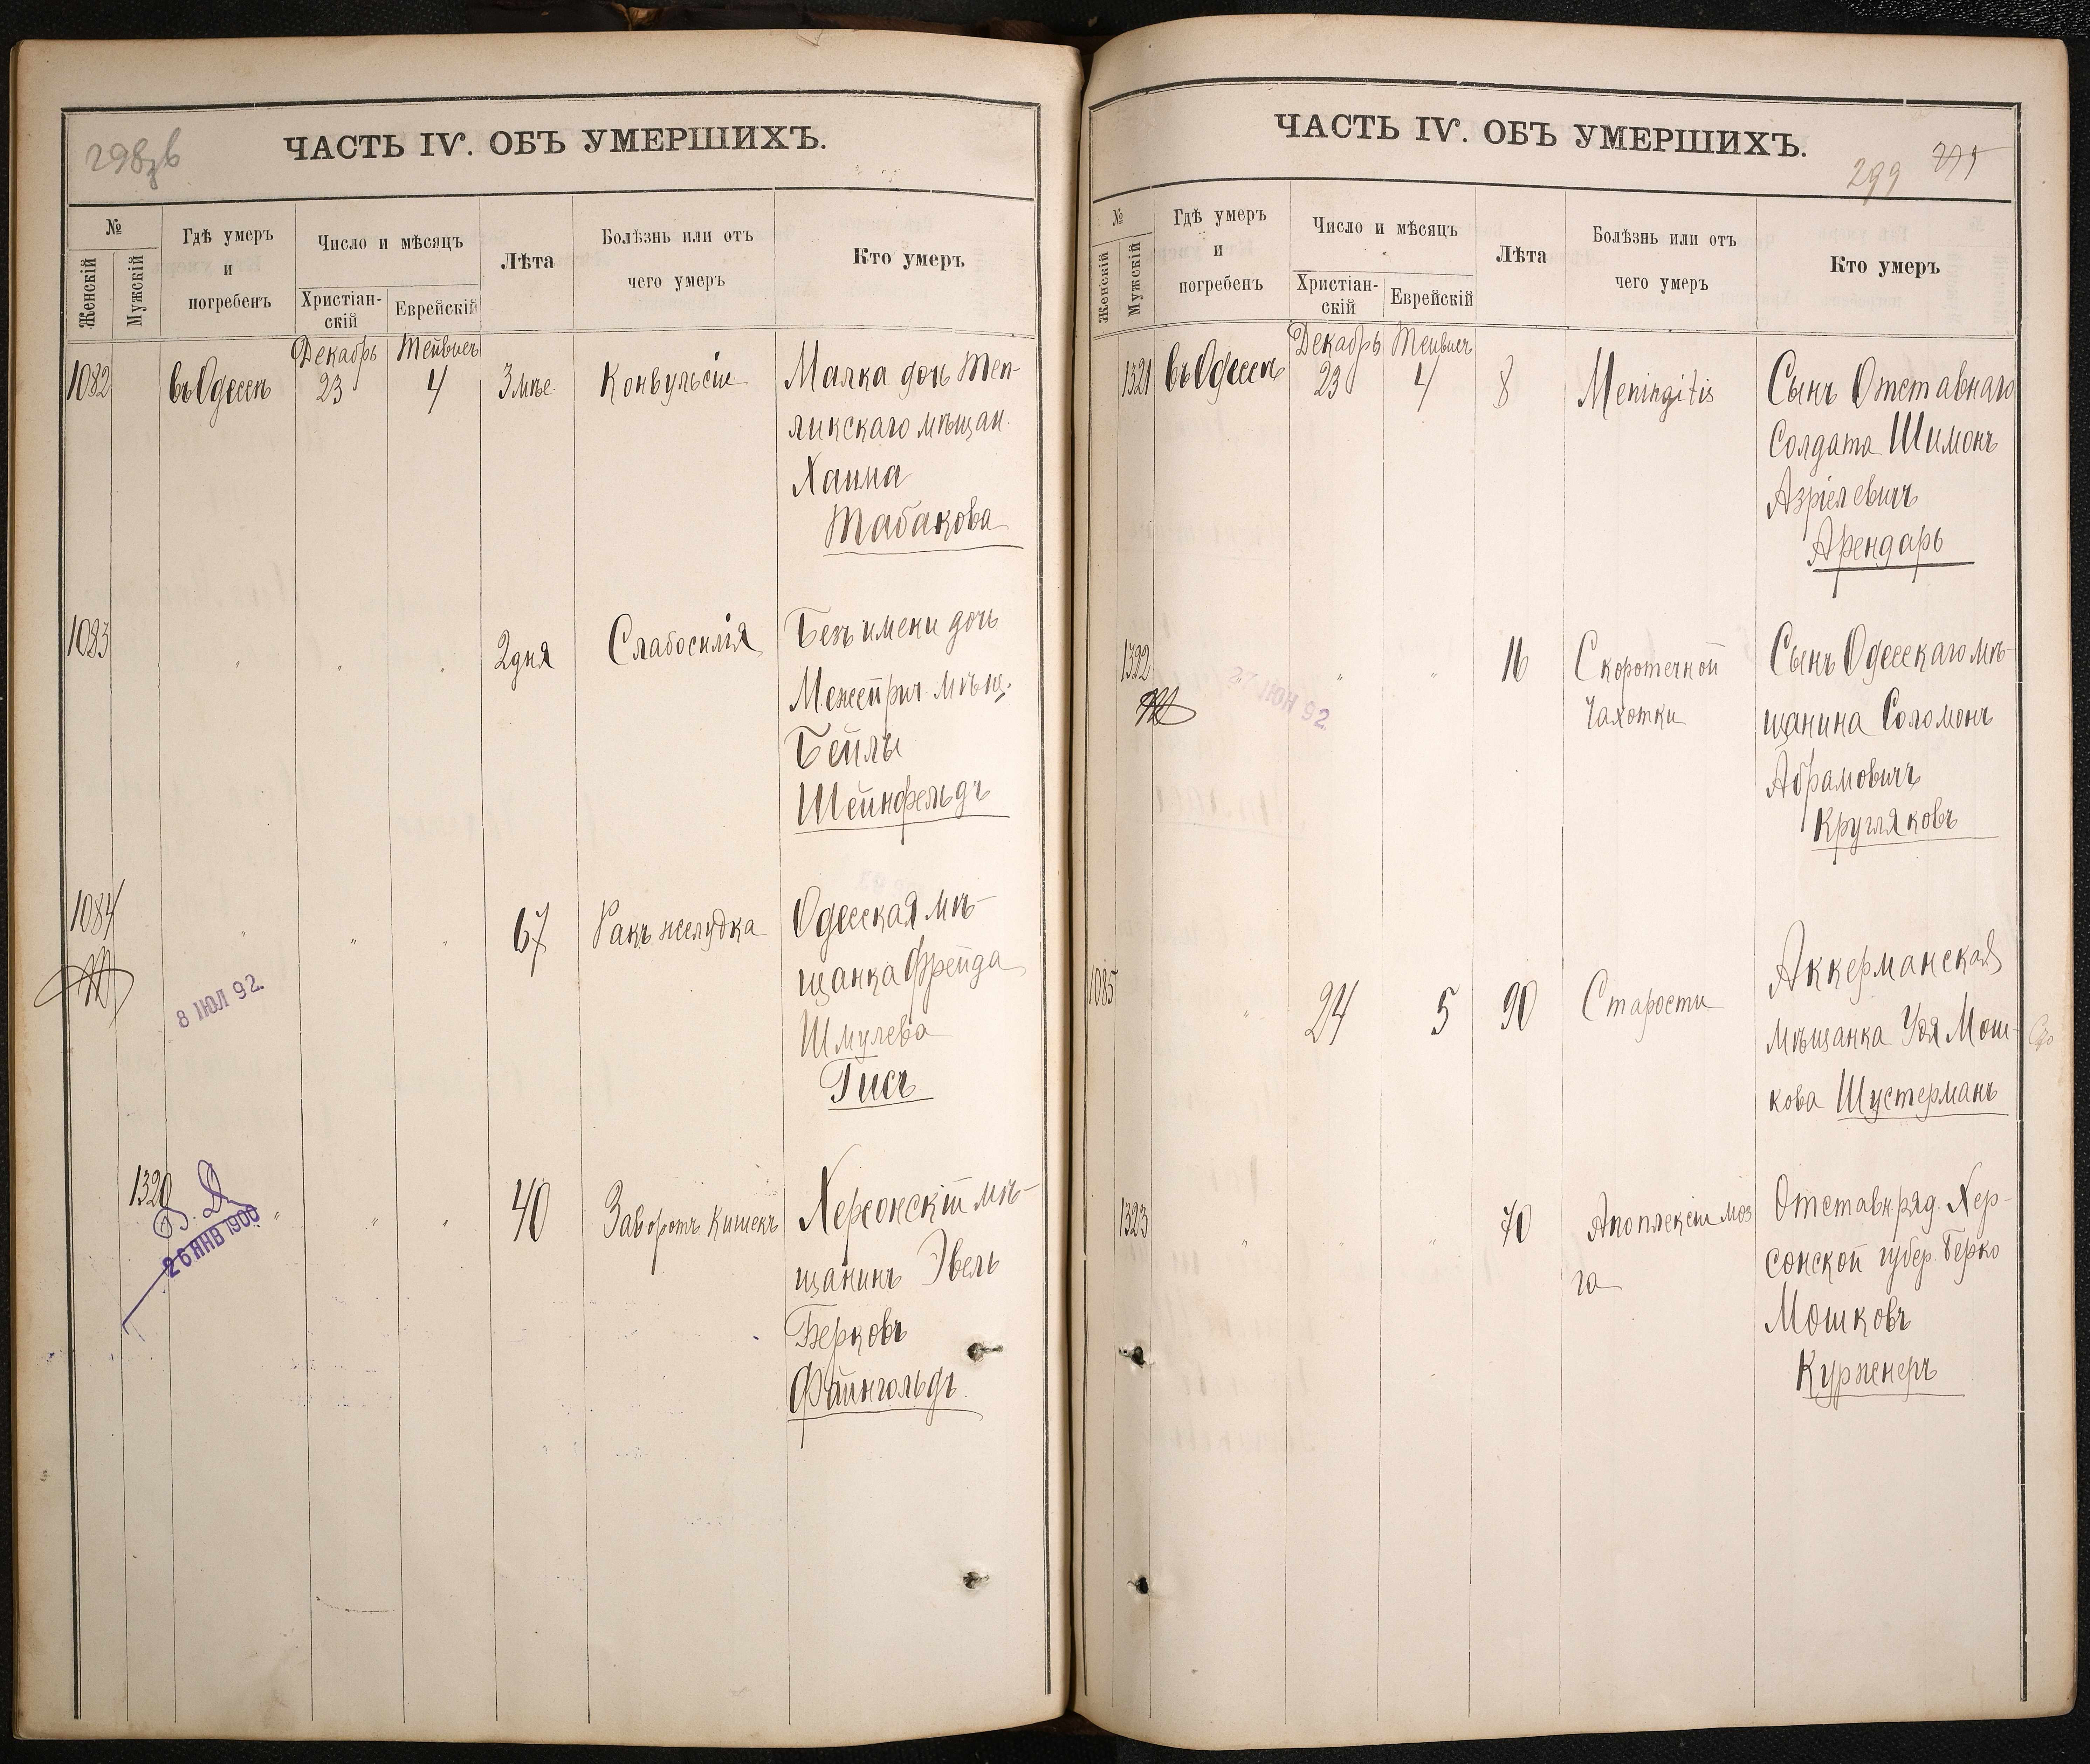 298зв
ЧАСТЬ IV. ОБЪ УМЕРШИХЪ.
№
Женскій
Мужскій
Гдѣ умеръ
и
погребенъ
Число и мѣсяцъ
Христіан-
скій
Еврейскій
Лѣта
Болѣзнь или отъ
чего умеръ
Кто умеръ
Декабрь Тейвисъ
1082 въ Одессѣ 23 4 3 мѣс. Конвульсіи Малка дочь Теп-
ликскаго мѣщан.
Хаима
Табакова
1083 " " " 2 дня Слабосилія Безъ имени дочь
Межейрич. мѣщ.
Бейлы
Шейнфельдъ
1084 " " " 67 Ракъ желудка Одесская мѣ-
щанка Фрейда
Шмулева
Гисъ
8 ІЮЛ 92.
1320 " " " 40 Заворотъ кишекъ Херсонскій мѣ-
щанинъ Эвель
Берковъ
Файнгольдъ
26 ЯНВ 1900
ЧАСТЬ IV. ОБЪ УМЕРШИХЪ.
299
№
Женскій
Мужскій
Гдѣ умеръ
и
погребенъ
Число и мѣсяцъ
Христіан-
скій
Еврейскій
Лѣта
Болѣзнь или отъ
чего умеръ
Кто умеръ
Декабрь Тейвисъ
1321 въ Одессѣ 23 4 8 Meningitis Сынъ Отставнаго
Солдата Шимонъ
Азріелевичъ
Арендарь
1322 " " 16 Скоротечной Сынъ Одесскаго мѣ-
Чахотки щанина Соломонъ
Абрамовичъ
Кругляковъ
ІЮН 92.
1085 " 24 5 90 Старости Аккерманская
Мѣщанка Удя Мош-
кова Шустерманъ
1323 " " " 70 Апоплексіи моз Отставн. ряд. Хер-
га сонской губер. Берко
Мошковъ
Курженеръ